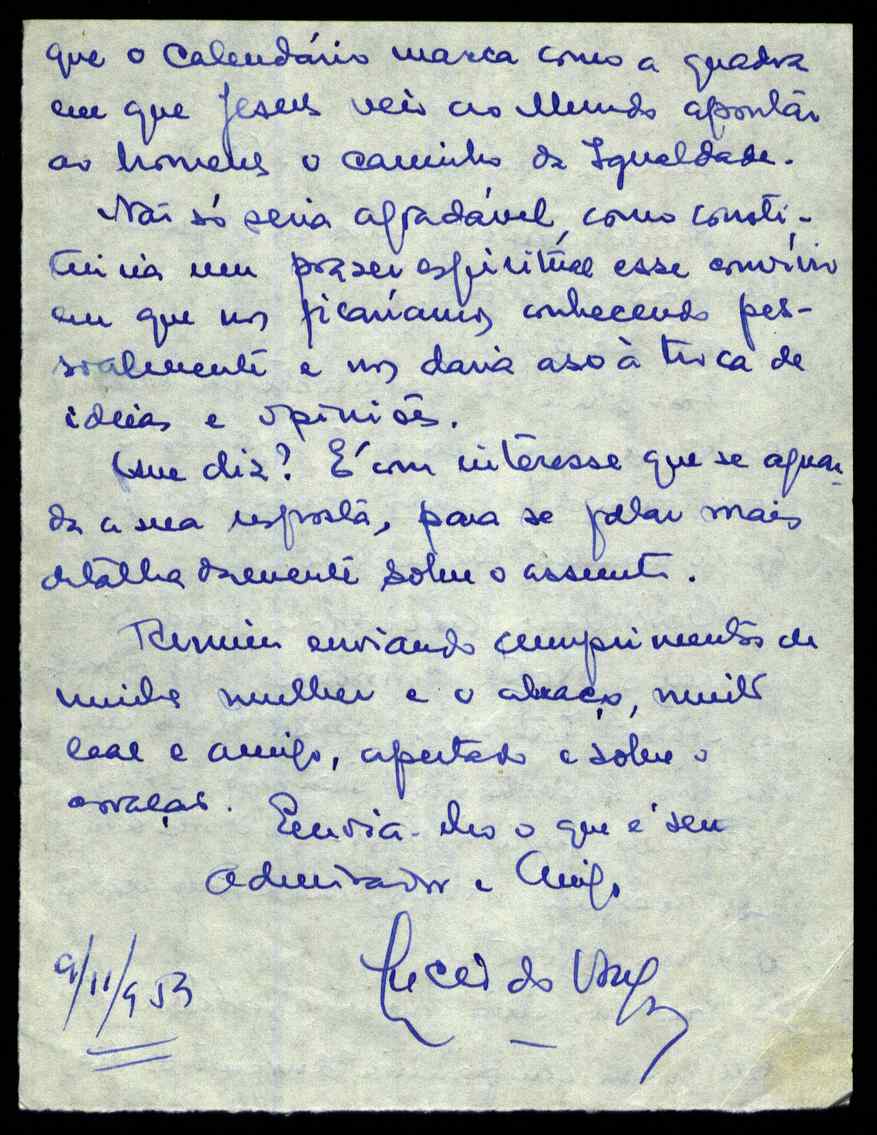 que o Calendário marca como a quadra
em que Jesus veio ao Mundo apontar
ao homens o caminho da Igualdade.
Não só seria agradável, como consti-
tuiria um prazer espiritual esse convívio
em que nos ficaríamos conhecendo pes-
soalmente e nos daria aso à troca de
ideias e opiniões.
Que diz? É com interesse que se aguar-
da a sua resposta, para se falar mais
detalhadamente sobre o assunto.
Termino enviando cumprimentos de
minha mulher e o abraço, muito
leal e amigo, apertado e sobre o
coração.
Envia-lho o que é seu
Admirador e Amigo,
do
9/11/953